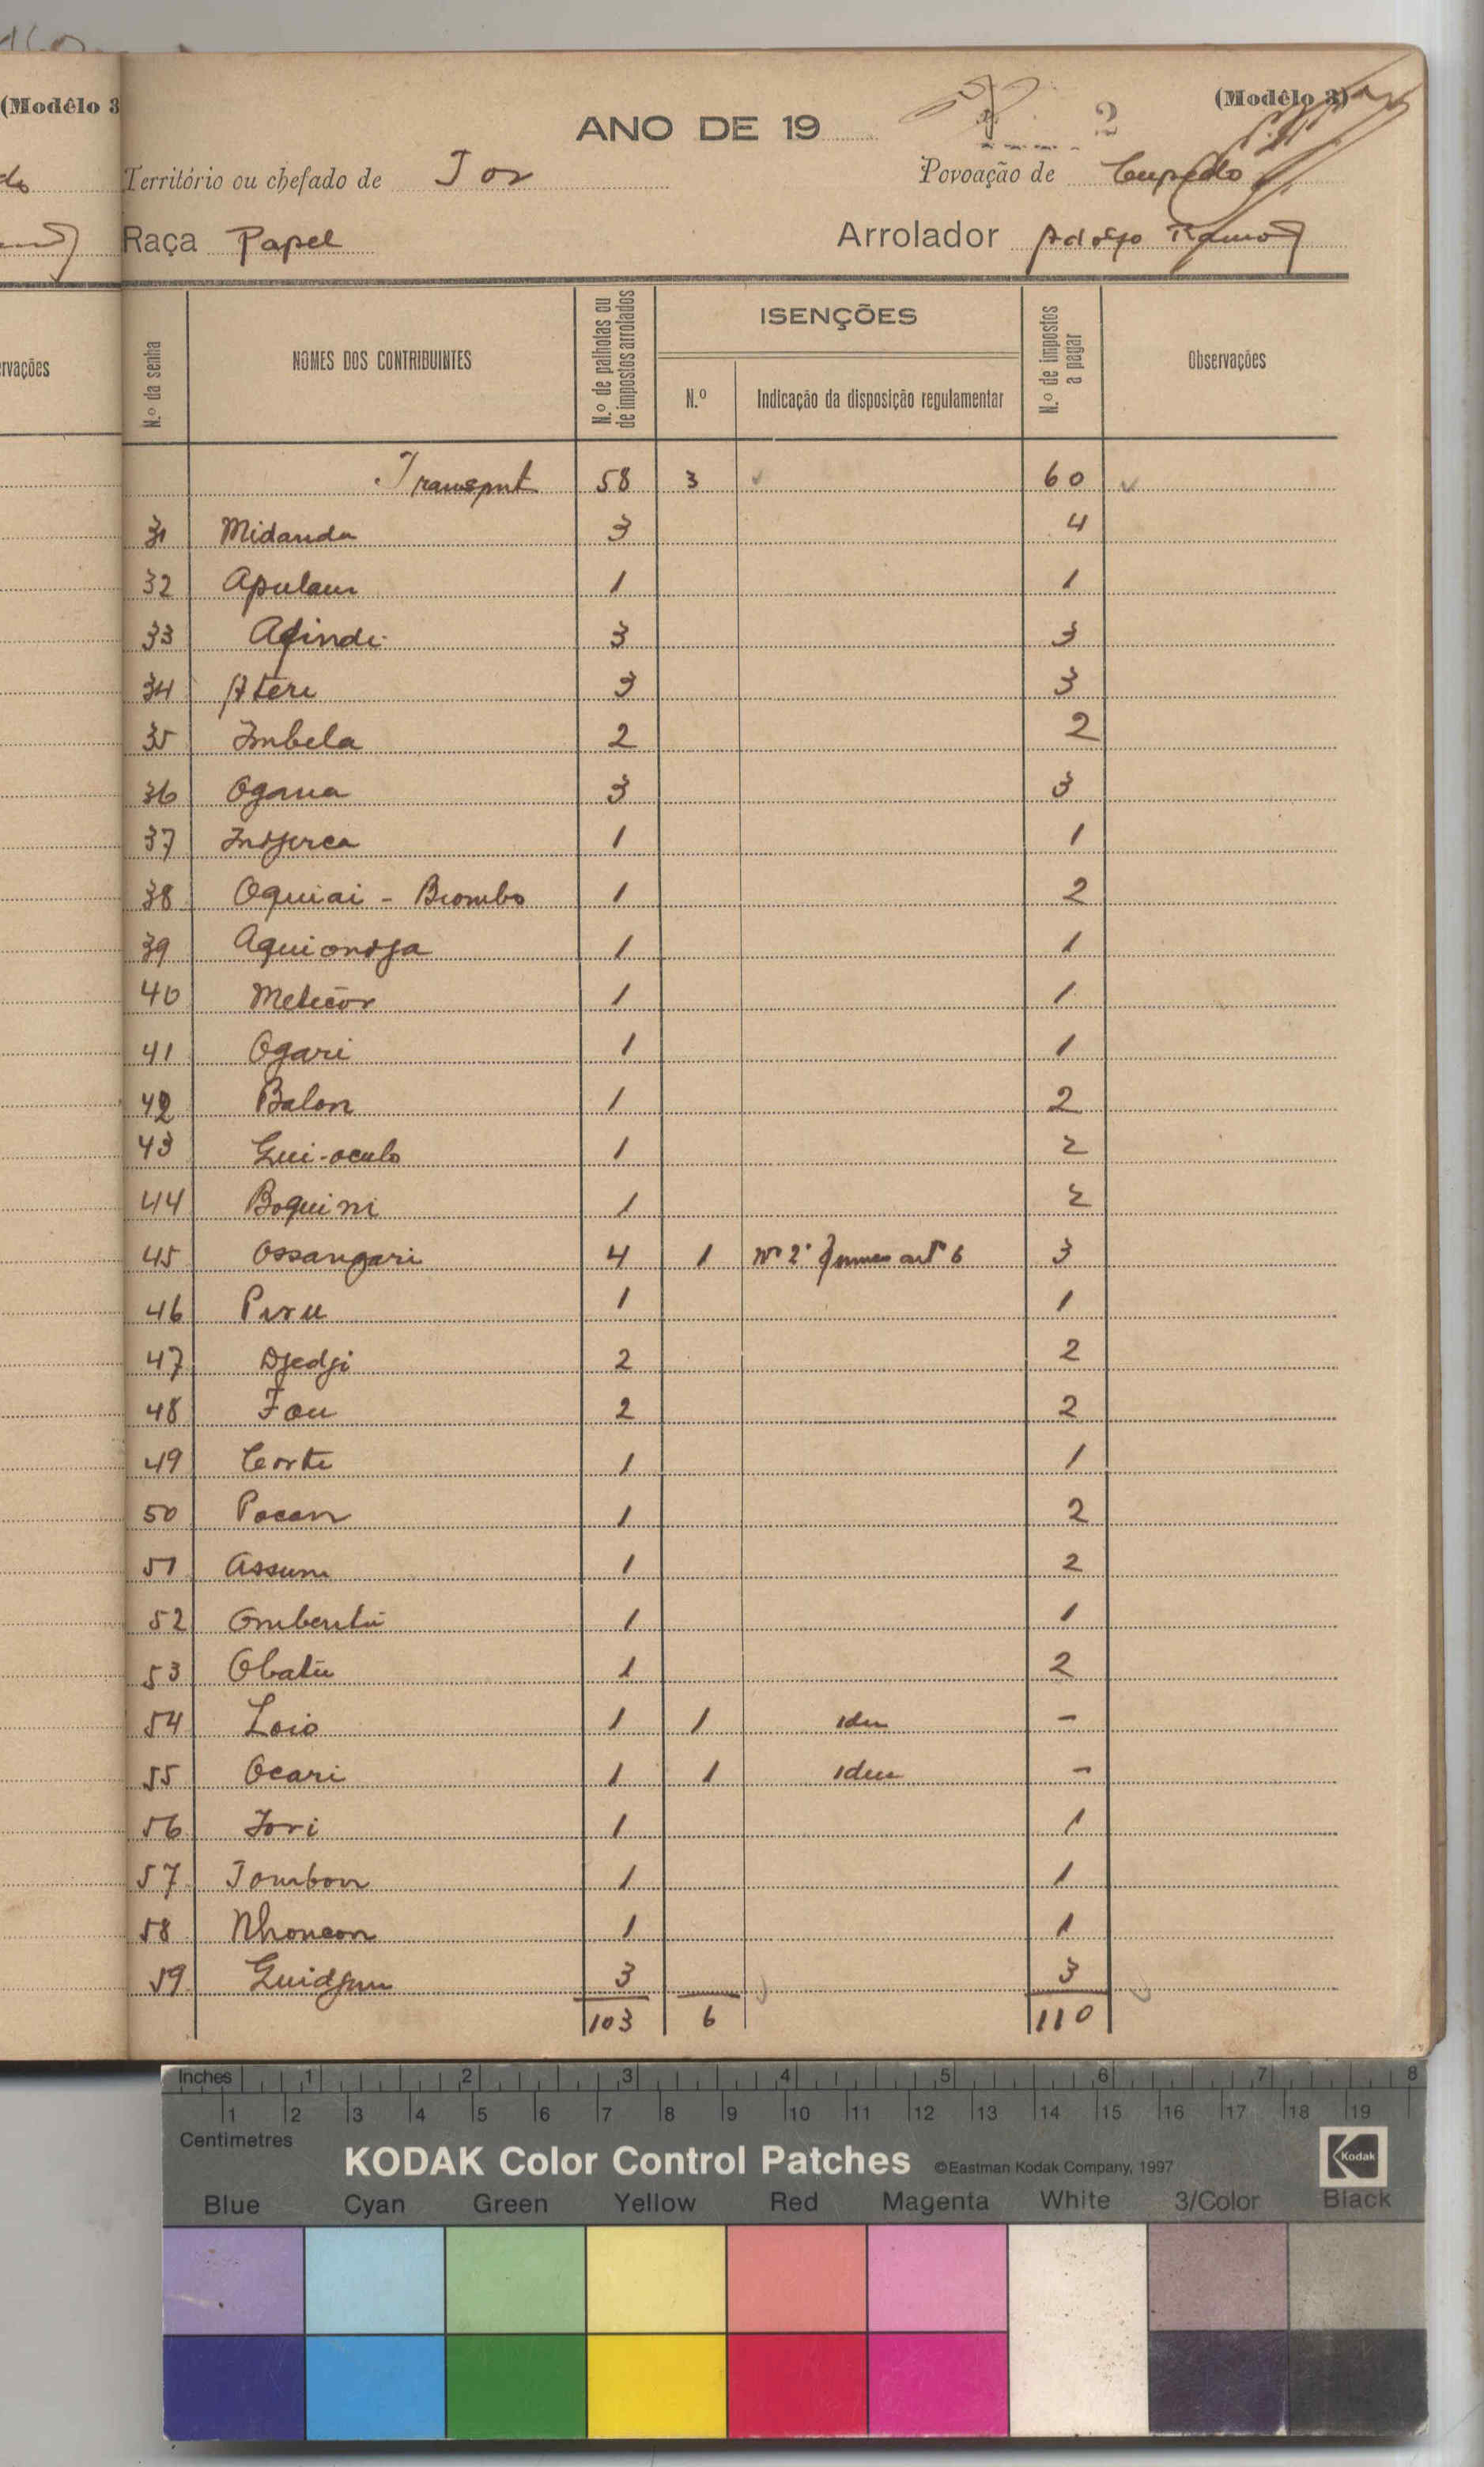 (Modêlo 3
(Modêlo 3)
ANO DE 19
2
Território ou chefado de Tor
Povoação de Cupedo
Raça Papel
Arrolador Adolfo Ramos
rvações
N.º da senha
NOMES DOS CONTRIBUINTES
N.º de palhotas ou de impostos arrolados
ISENÇÕES
N.º
Indicação da disposição regulamentar
N.º de impostos a pagar
Observações
Transport 58 3 60
31 Midanda 3 4
32 Apulam 1 1
33 Afinde 3 3
34 Atere 3 3
35 Imbela 2 2
36 Ogana 3 3
37 Indjerca 1 1
38 Oquiai - Biombo 1 2
39 Aquiondja 1 1
40 Metecor 1 1
41 Ogari 1 1
42 Balon 1 2
43 Gui-oculo 1 2
44 Boquini 1 2
45 Ossangari 4 1 nº 2º artº 6 3
46 Piru 1 1
47 Djedji 2 2
48 Fou 2 2
49 Corte 1 1
50 Pocon 1 2
51 Assum 1 2
52 Ombentu 1 1
53 Obatu 1 2
54 Loio 1 1 idem -
55 Ocari 1 1 idem -
56 Iori 1 1
57 Tombon 1 1
58 Nhoncon 1 1
59 Guidjum 3 3
103 6 110
Inches 1 2 3 4 5 6 7 8
1 2 3 4 5 6 7 8 9 10 11 12 13 14 15 16 17 18 19
Centimetres
KODAK Color Control Patches ©Eastman Kodak Company, 1997 Kodak
Blue Cyan Green Yellow Red Magenta White 3/Color Black